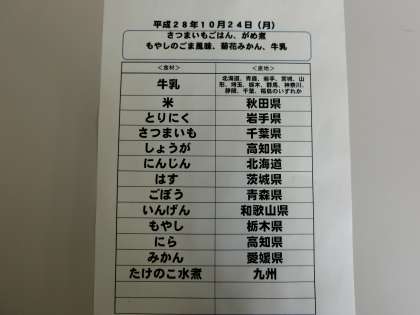 平成２８年１０月２４日（月）
さつまいもごはん、がめ煮
もやしのごま風味、菊花みかん、牛乳
＜食材＞ ＜産地＞
牛乳 北海道、青森、岩手、宮城、山形、埼玉、栃木、群馬、神奈川、静岡、千葉、福島のいずれか
米 秋田県
とりにく 岩手県
さつまいも 千葉県
しょうが 高知県
にんじん 北海道
はす 茨城県
ごぼう 青森県
いんげん 和歌山県
もやし 栃木県
にら 高知県
みかん 愛媛県
たけのこ水煮 九州